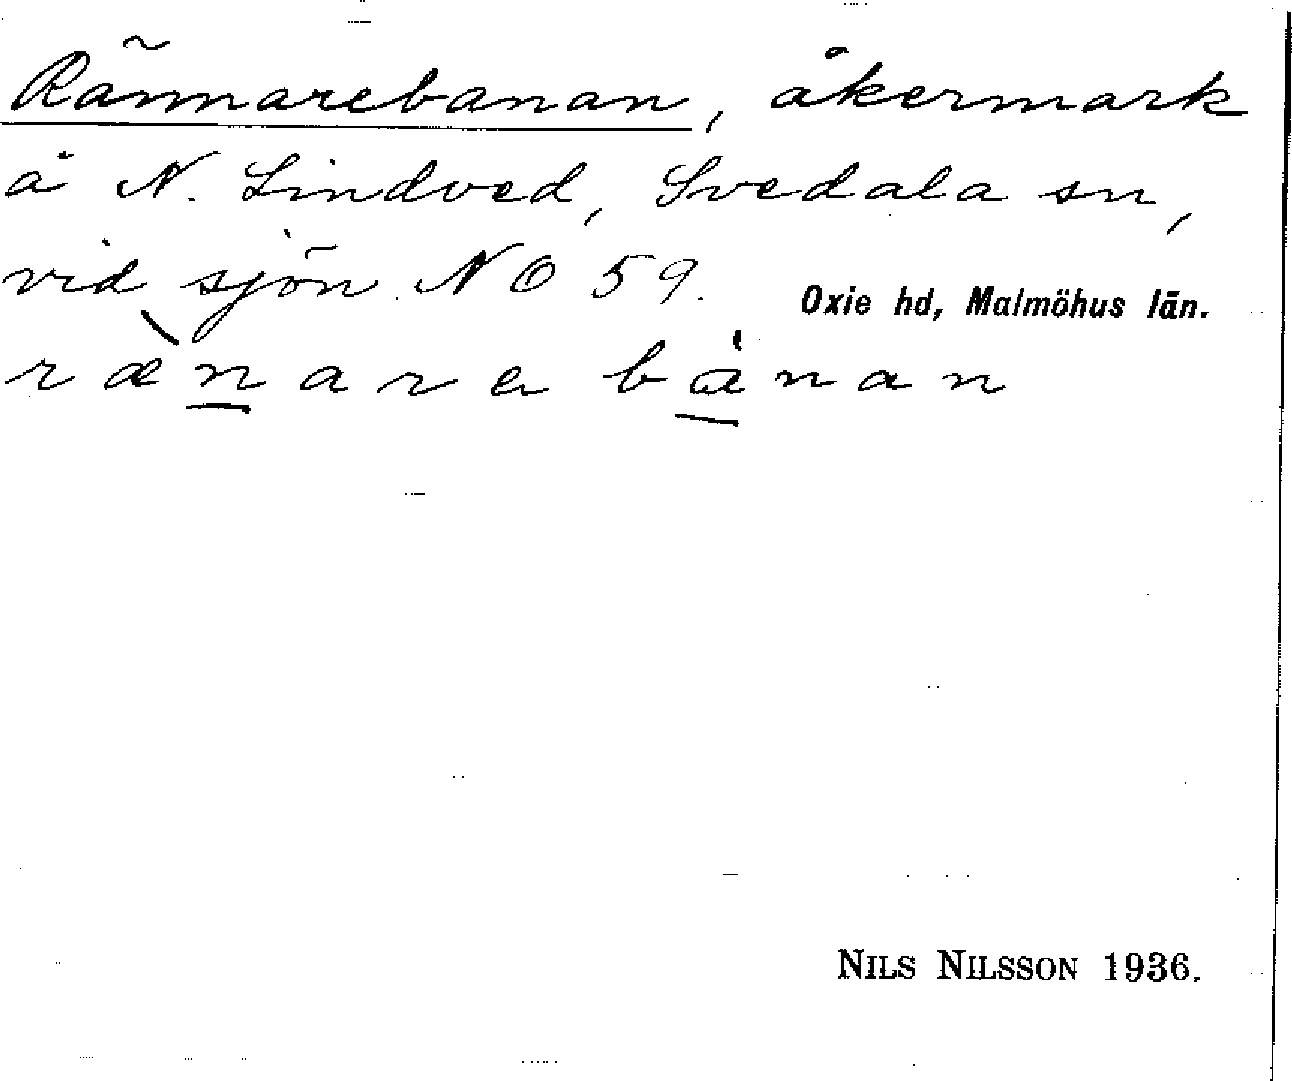 Rännarebanan, åkermark
å N. Lindved, Svedala sn,
vid sjön NO 59. Oxie hd, Malmöhus län.
rænare bánan
NILS NILSSON 1936.